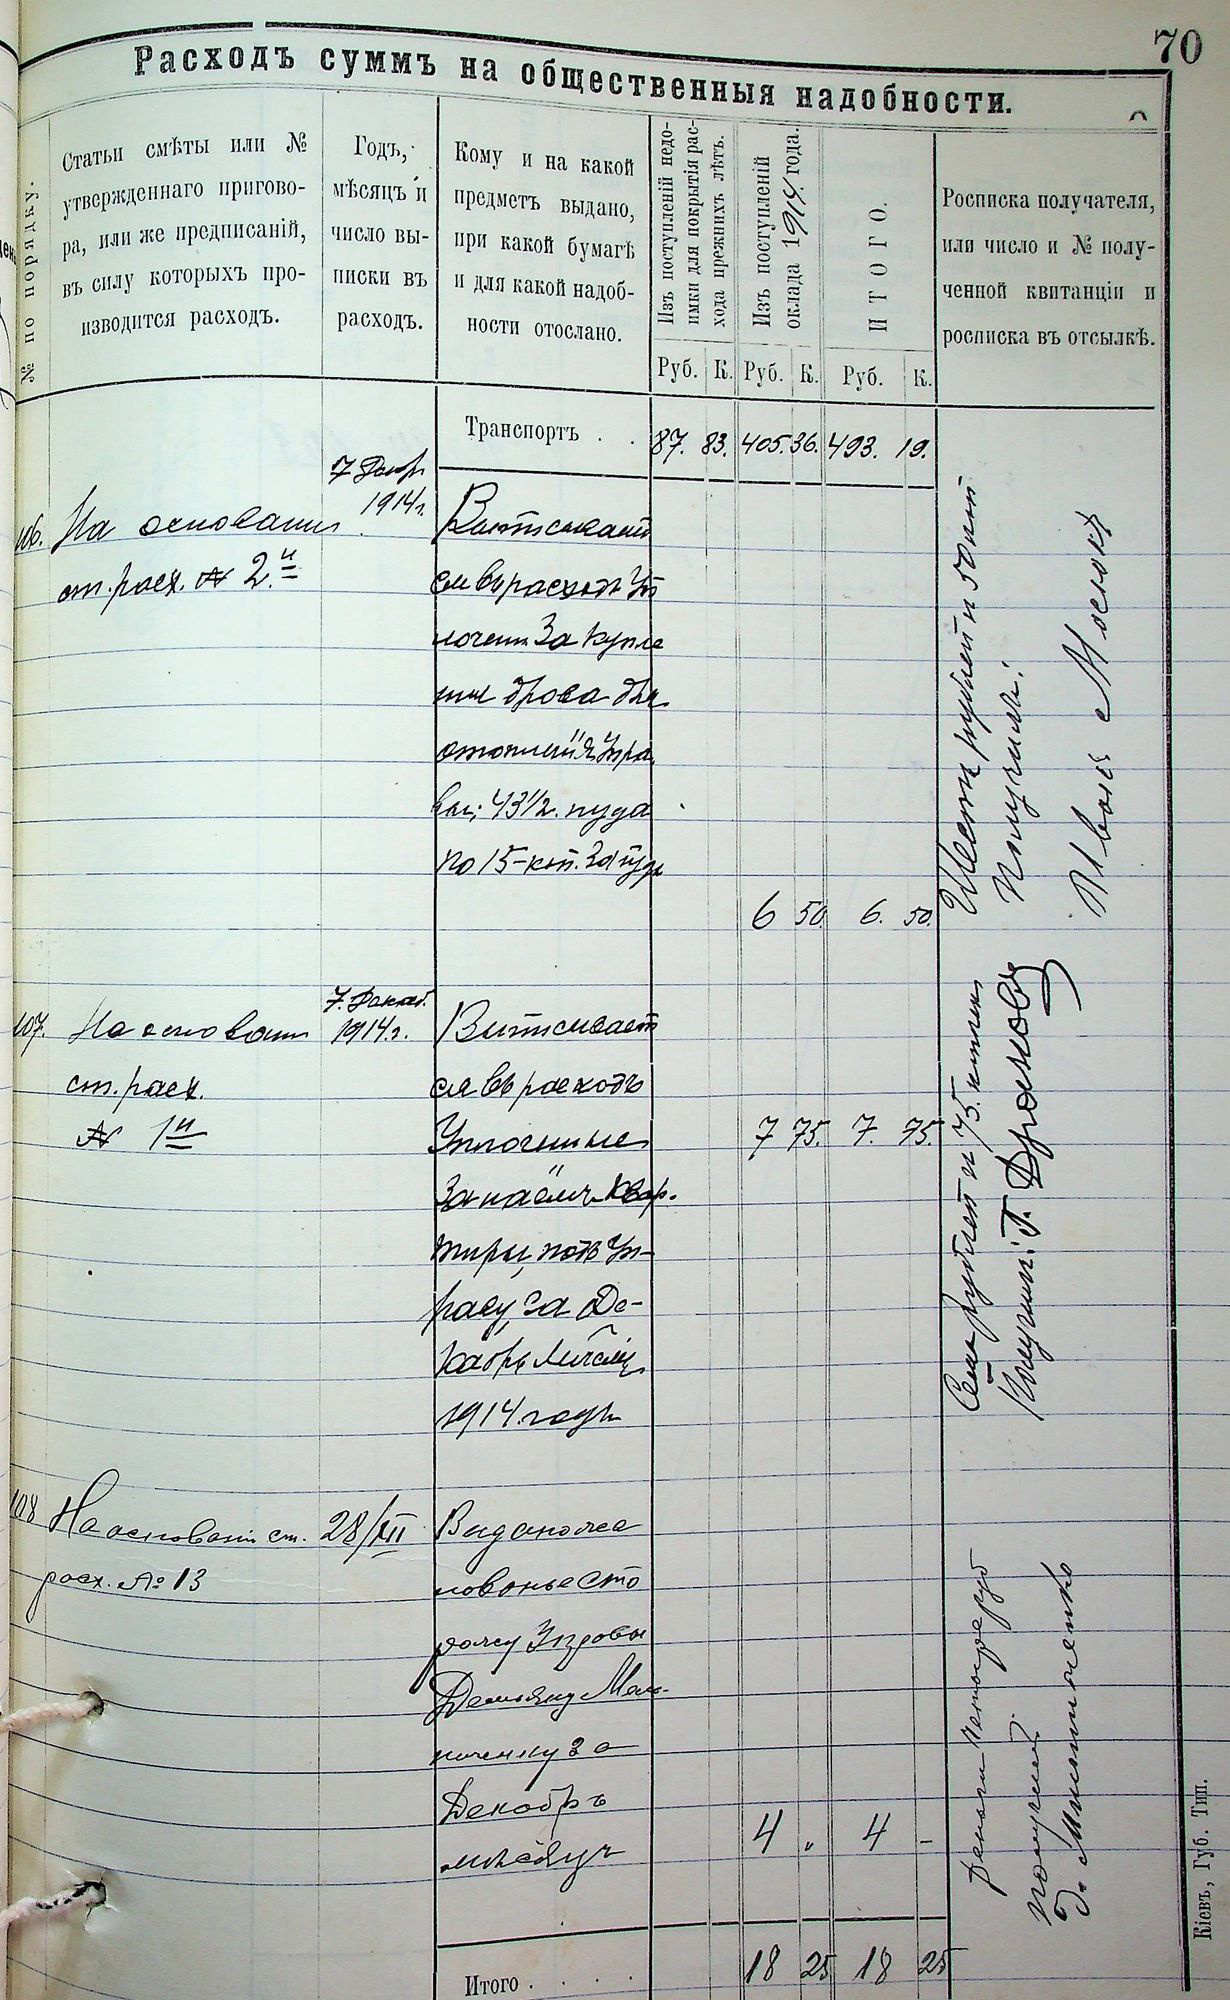 70
Расходъ суммъ на общественныя надобности.
№ по порядку.
Статьи смѣты или №
утвержденнаго пригово-
ра, или же предписаній,
въ силу которыхъ про-
изводится расходъ.
Годъ,
мѣсяцъ и
число вы-
писки въ
расходъ.
Кому и на какой
предметъ выдано,
при какой бумагѣ
и для какой надоб-
ности отослано.
Изъ поступленій недо-
имки для покрытія рас-
хода прежнихъ лѣтъ.
Изъ поступленій
оклада 1914 года.
ИТОГО.
Росписка получателя,
или число и № полу-
ченной квитанціи и
росписка въ отсылкѣ.
Руб. К. Руб. К. Руб. К.
Транспортъ . . 87. 83. 405. 36. 493. 19.
106. На основании
ст. расх. № 2.й
7 Декбр.
1914 г.
Выписывает
ся въ расходъ Уп
лочен За купле
ные дрова для
отопления Упра
вы; 43 1/2. пуда
по 15-коп. За пудъ
6 50. 6. 50.
Шесть рублей и 50 коп
Получилъ:
107. На основании
ст. расх.
№ 1й
7. Декаб.
1914. г.
Выписывает
ся въ расходъ
Уплоченные
За наёмъ Квар-
тиры, подъ Уп-
раву, за Де-
кабрь Месяцъ
1914. года
7 75. 7. 75.
Семь рублей и 75. копеек
Получил: Г. Дранову
108 На основании ст.
расх. № 13
28/XII
Выдано жа
лованье сто
рожу Управы
Демьяну
за
Декабрь
месяцъ
4 „ 4 -
деньги четыре руб
получилъ
Итого . . . . 18 25 18 25
Кіевъ, Губ. Тип.